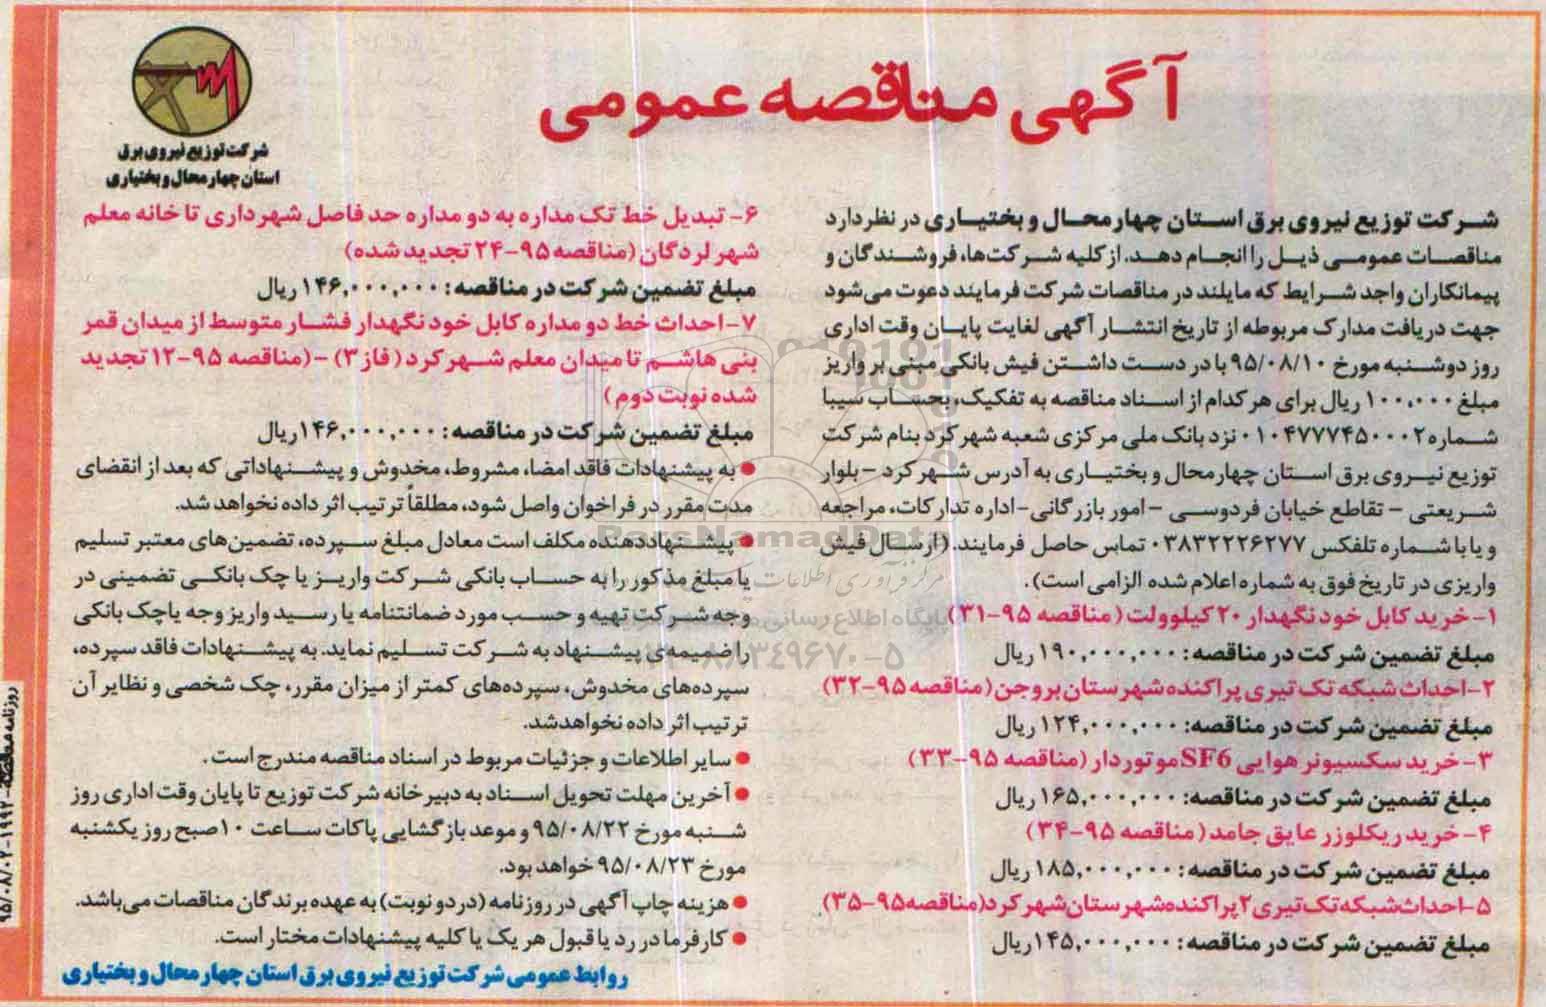 آگهی مناقصه عمومی
شرکت توزیع نیروی برق
استان چهارمحال و بختیاری
شرکت توزیع نیروی برق استان چهارمحال و بختیاری در نظر دارد
مناقصات عمومی ذیل را انجام دهد. از کلیه شرکت‌ها، فروشندگان و
پیمانکاران واجد شرایط که مایلند در مناقصات شرکت فرمایند دعوت می‌شود
جهت دریافت مدارک مربوطه از تاریخ انتشار آگهی لغایت پایان وقت اداری
روز دوشنبه مورخ ۹۵/۰۸/۱۰ با در دست داشتن فیش بانکی مبنی بر واریز
مبلغ ۱۰۰,۰۰۰ ریال برای هر کدام از اسناد مناقصه به تفکیک، بحساب سیبا
شماره ۰۱۰۴۷۷۷۴۵۰۰۰۲ نزد بانک ملی مرکزی شعبه شهرکرد بنام شرکت
توزیع نیروی برق استان چهارمحال و بختیاری به آدرس شهرکرد – بلوار
شریعتی – تقاطع خیابان فردوسی – امور بازرگانی-اداره تدارکات، مراجعه
و یا با شماره تلفکس ۰۳۸۳۲۲۲۶۲۷۷ تماس حاصل فرمایند. (ارسال فیش
واریزی در تاریخ فوق به شماره اعلام شده الزامی است).
۱- خرید کابل خودنگهدار ۲۰ کیلوولت ( مناقصه ۹۵-۳۱)
مبلغ تضمین شرکت در مناقصه: ۱۹۰,۰۰۰,۰۰۰ ریال
۲- احداث شبکه تک تیری پراکنده شهرستان بروجن (مناقصه ۹۵-۳۲)
مبلغ تضمین شرکت در مناقصه: ۱۲۴,۰۰۰,۰۰۰ ریال
۳- خرید سکسیونر هوایی SF6 موتوردار (مناقصه ۹۵-۳۳)
مبلغ تضمین شرکت در مناقصه: ۱۶۵,۰۰۰,۰۰۰ ریال
۴- خرید ریکلوزر عایق جامد ( مناقصه ۹۵-۳۴)
مبلغ تضمین شرکت در مناقصه: ۱۸۵,۰۰۰,۰۰۰ ریال
۵- احداث شبکه تک تیری ۲ پراکنده شهرستان شهرکرد (مناقصه ۹۵-۳۵)
مبلغ تضمین شرکت در مناقصه: ۱۴۵,۰۰۰,۰۰۰ ریال
۶- تبدیل خط تک مداره به دو مداره حد فاصل شهرداری تا خانه معلم
شهر لردگان (مناقصه ۹۵-۲۴ تجدید شده)
مبلغ تضمین شرکت در مناقصه: ۱۴۶,۰۰۰,۰۰۰ ریال
۷- احداث خط دو مداره کابل خودنگهدار فشار متوسط از میدان قمر
بنی هاشم تا میدان معلم شهرکرد ( فاز ۳) – (مناقصه ۹۵-۱۲ تجدید
شده نوبت دوم )
مبلغ تضمین شرکت در مناقصه: ۱۴۶,۰۰۰,۰۰۰ ریال
● به پیشنهادات فاقد امضا، مشروط، مخدوش و پیشنهاداتی که بعد از انقضای
مدت مقرر در فراخوان واصل شود، مطلقاً ترتیب اثر داده نخواهد شد.
● پیشنهاددهنده مکلف است معادل مبلغ سپرده، تضمین‌های معتبر تسلیم
یا مبلغ مذکور را به حساب بانکی شرکت واریز یا چک بانکی تضمینی در
وجه شرکت تهیه و حسب مورد ضمانتنامه یا رسید واریز وجه یا چک بانکی
را ضمیمه‌ی پیشنهاد به شرکت تسلیم نماید. به پیشنهادات فاقد سپرده،
سپرده‌های مخدوش، سپرده‌های کمتر از میزان مقرر، چک شخصی و نظایر آن
ترتیب اثر داده نخواهد شد.
● سایر اطلاعات و جزئیات مربوط در اسناد مناقصه مندرج است.
● آخرین مهلت تحویل اسناد به دبیرخانه شرکت توزیع تا پایان وقت اداری روز
شنبه مورخ ۹۵/۰۸/۲۲ و موعد بازگشایی پاکات ساعت ۱۰ صبح روز یکشنبه
مورخ ۹۵/۰۸/۲۳ خواهد بود.
● هزینه چاپ آگهی در روزنامه (در دو نوبت) به عهده برندگان مناقصات می‌باشد.
● کارفرما در رد یا قبول هر یک یا کلیه پیشنهادات مختار است.
روابط عمومی شرکت توزیع نیروی برق استان چهارمحال و بختیاری
روزنامه مناقصه-۱۹۹۲-۹۵/۰۸/۰۲
ParsNamadData
مرکز فرآوری اطلاعات
پایگاه اطلاع رسانی
۰۲۱-۸۸۳۴۹۶۷۰-۵